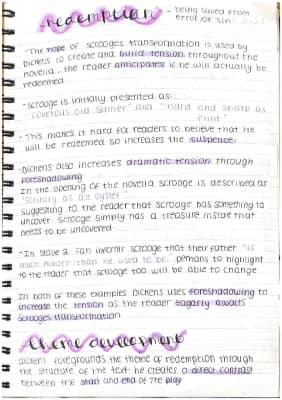 redemption
- being saved from
error or sin
- The hope of scrooges transformation is used by
Dickens to create and build tension throughout the
novella, the reader anticipates if he will actually be
redeemed
- Scrooge is initially presented as
"covetous old sinner" and "hard and sharp as
flint"
- This makes it hard for readers to believe that he
will be redeemed so increases the suspence.
- Dickens also increases dramatic tension through
foreshadowing
In the opening of the novella scrooge is described as
"solitary as an oyster"
suggesting to the reader that scrooge has something to
uncover. Scrooge simply has a treasure inside that
needs to be uncovered.
- In Stave 2 Fan informs scrooge that their father "is
much kinder than he used to be" to highlight
to the reader that scrooge too will be able to change
In both of these examples Dickens uses foreshadowing to
increase the tension as the reader eagarly awaits
scrooges transformation
theme development
Dickens foregrounds the theme of redemption through
the structure of the text he creates a direct contrast
between the start and end of the play